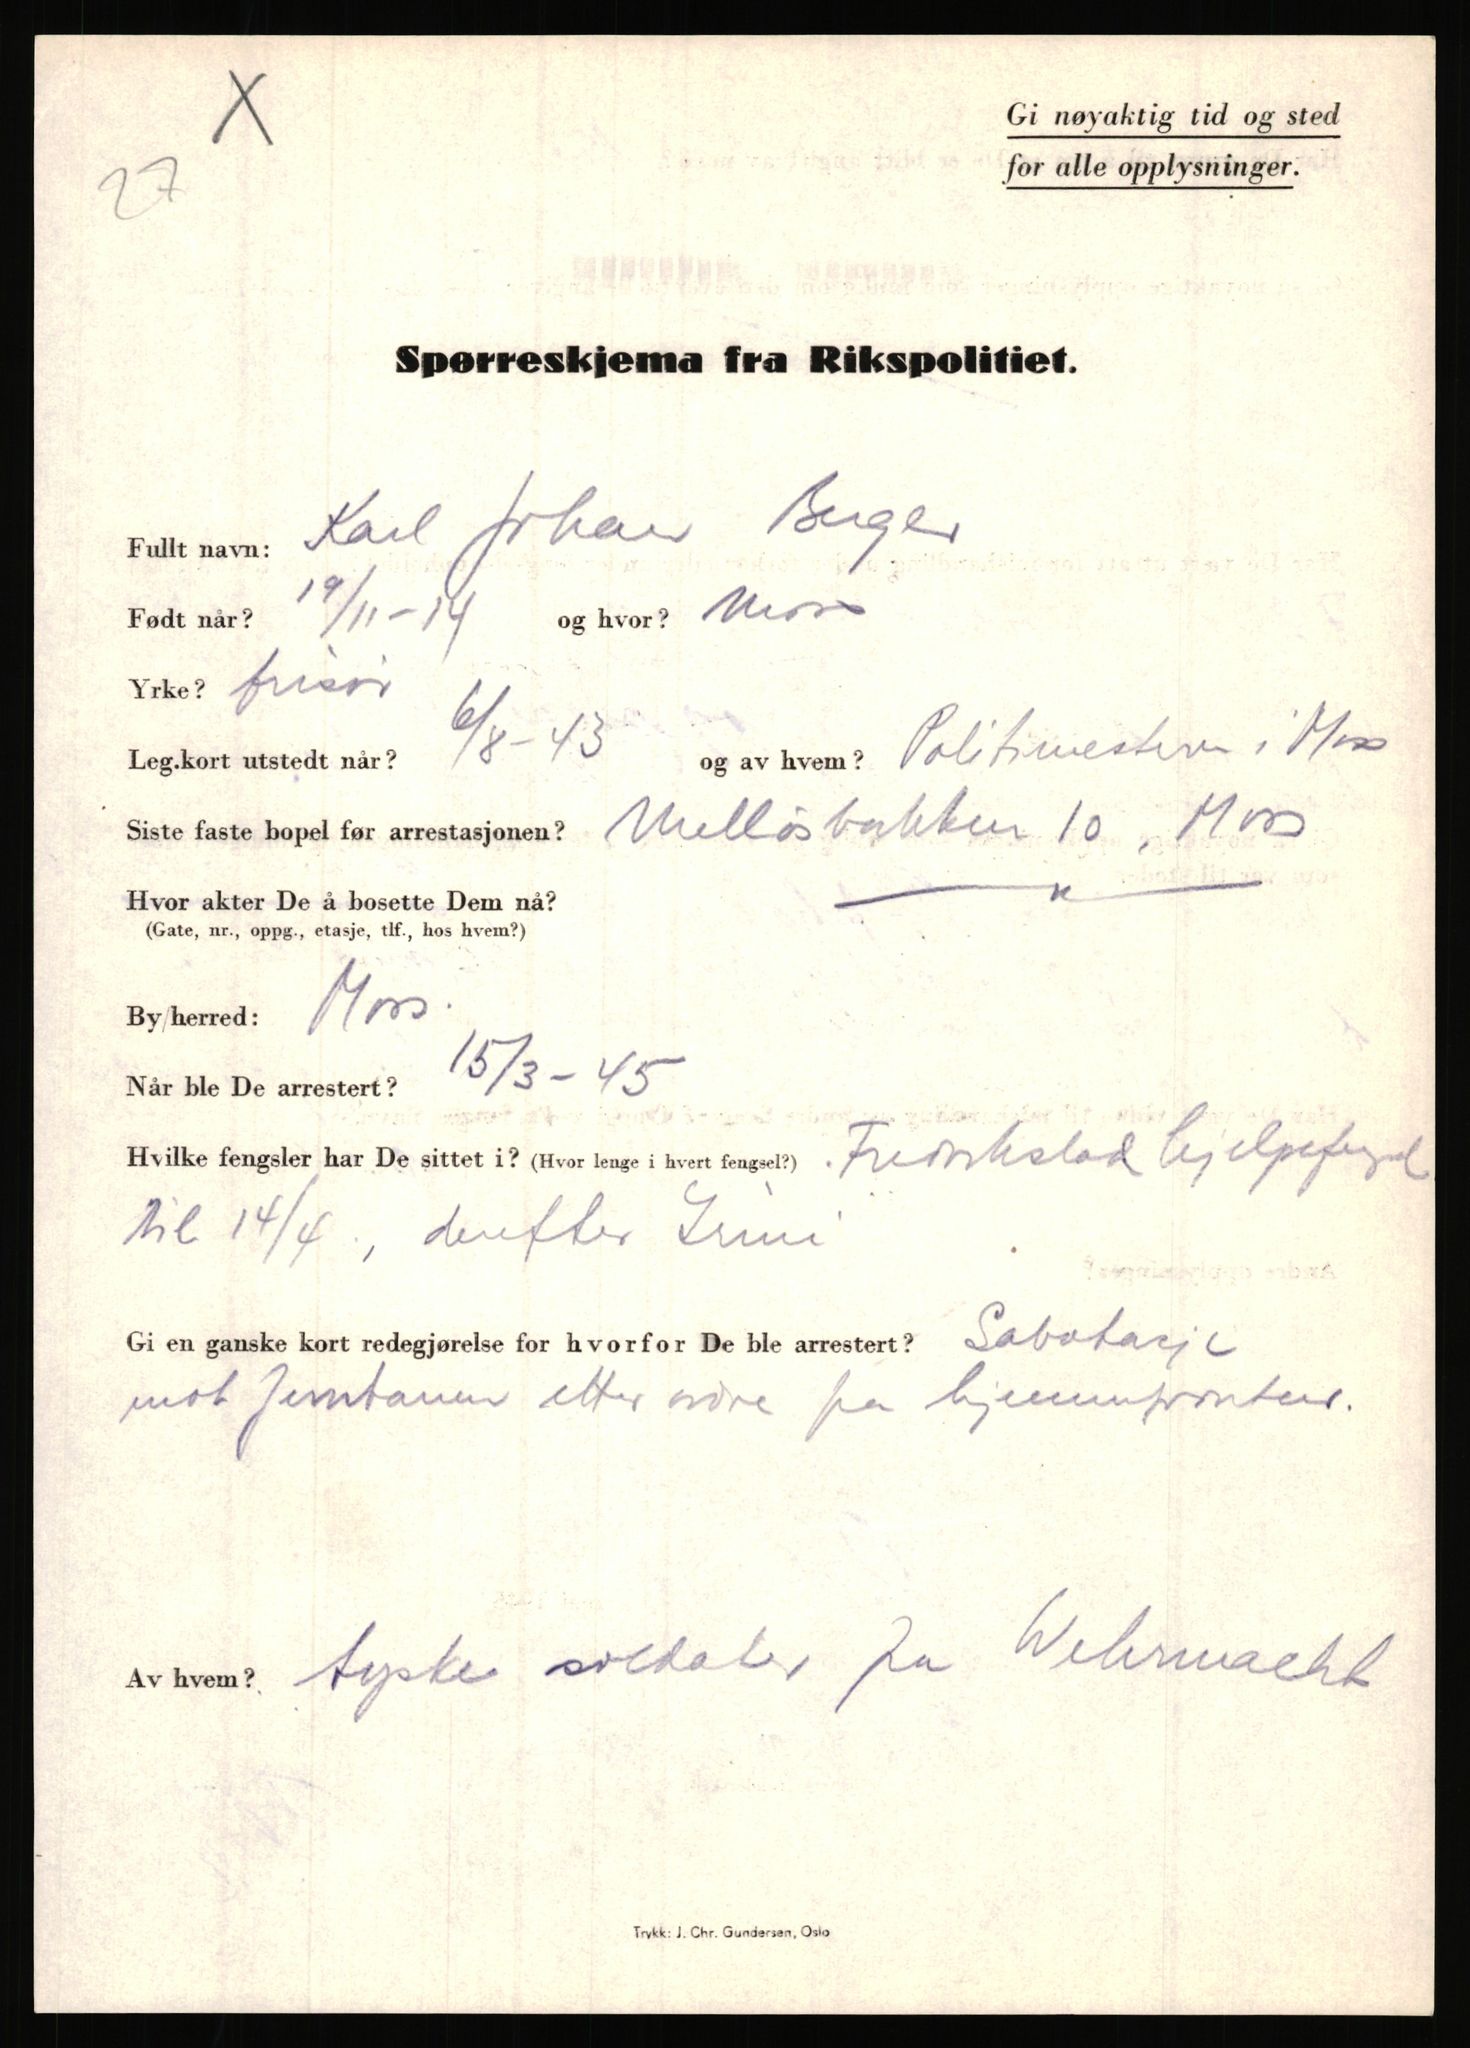 X
27
Gi nøyaktig tid og sted
for alle opplysninger.
Spørreskjema fra Rikspolitiet.
Fullt navn: Karl Johan Berger
Født når? 19/11-14 og hvor? Moss
Yrke? frisør
Leg.kort utstedt når? 6/8-43 og av hvem? Politimesteren i Moss
Siste faste bopel før arrestasjonen? Melløsbakken 10, Moss
Hvor akter De å bosette Dem nå? — " —
(Gate, nr., oppg., etasje, tlf., hos hvem?)
By/herred: Moss.
Når ble De arrestert? 15/3-45
Hvilke fengsler har De sittet i? (Hvor lenge i hvert fengsel?) Fredrikstad hjelpefengsel
til 14/4, derefter Grini
Gi en ganske kort redegjørelse for hvorfor De ble arrestert? Sabotasje
mot Jernbanen etter ordre fra hjemmefronten.
Av hvem? tyske soldater fra Wehrmacht
Trykk: J. Chr. Gundersen, Oslo